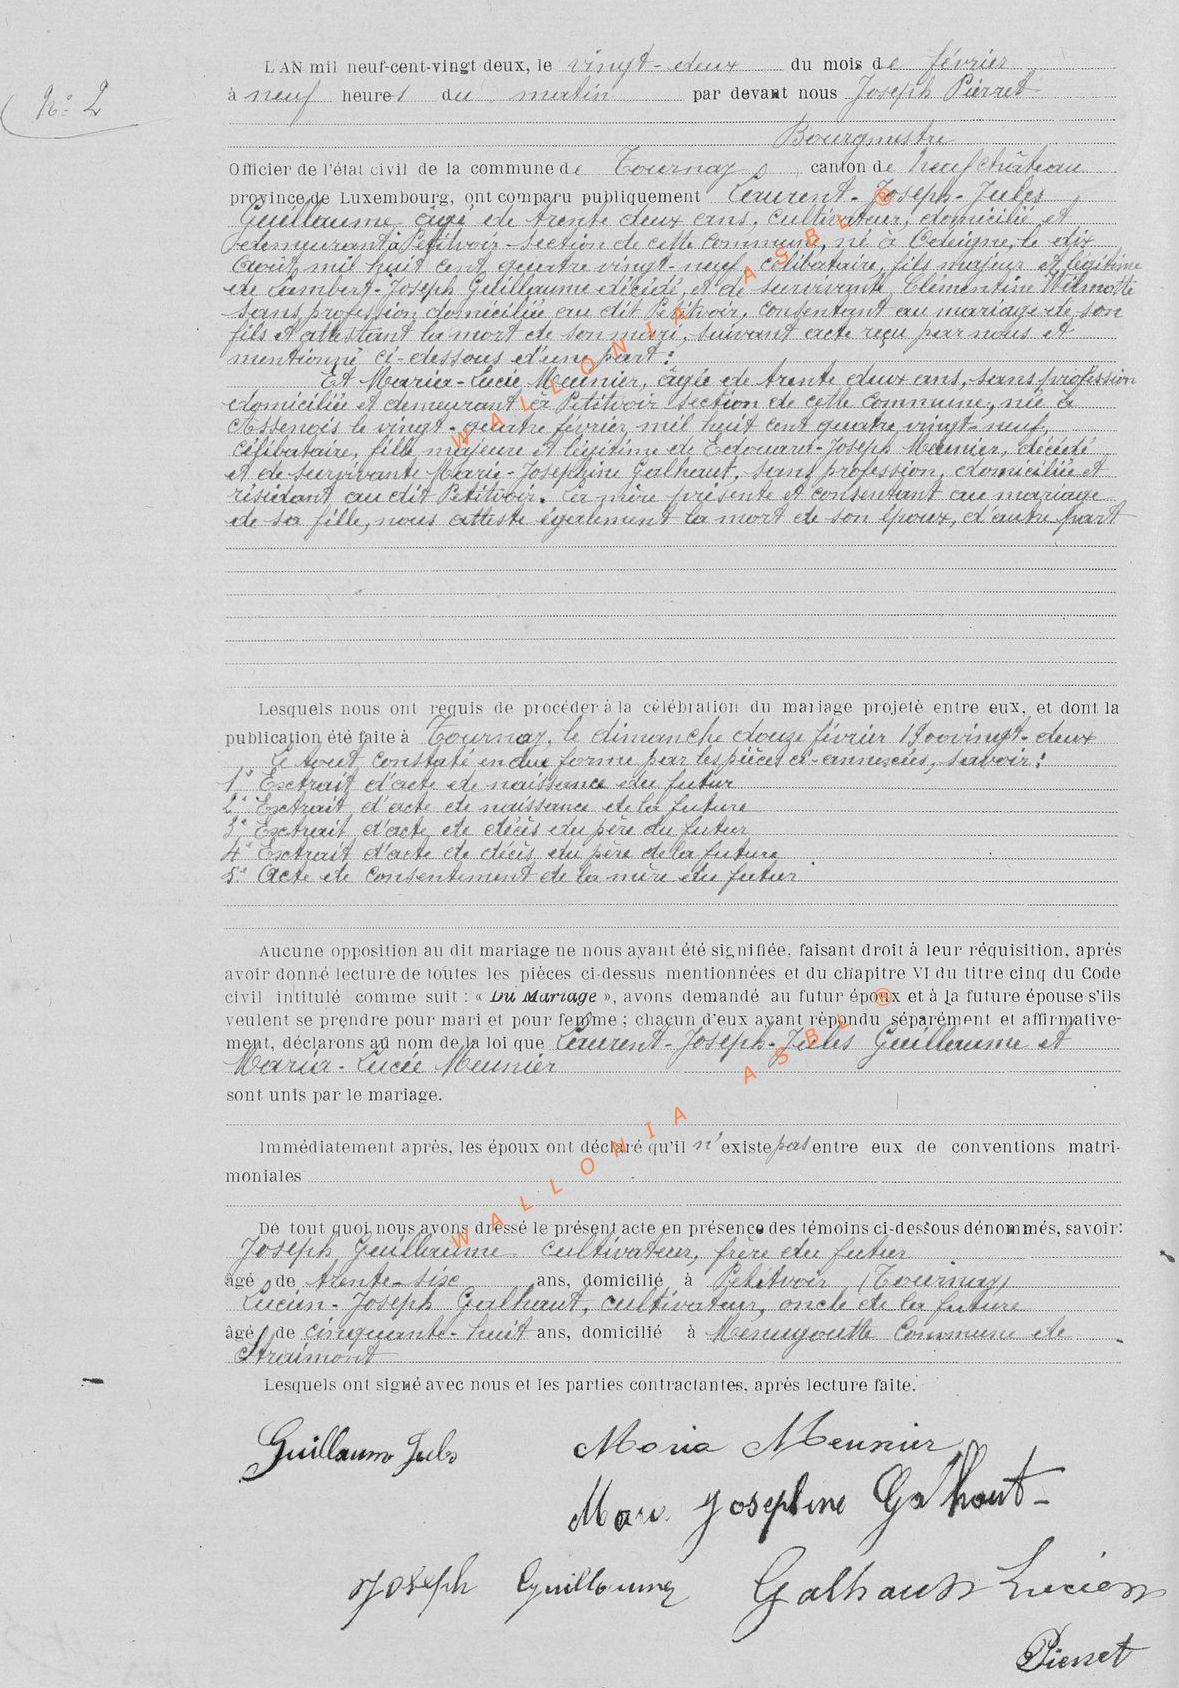 N° 2
L'AN mil neuf-cent-vingt deux, le vingt-deux du mois de février
à neuf heures du matin par devant nous Joseph Pierret
Bourgmestre
Officier de l'état civil de la commune de Tournay, canton de Neufchâteau
province de Luxembourg, ont comparu publiquement Laurent-Joseph-Jules
Guillaume, âgé de trente deux ans, cultivateur, domicilié et
demeurant à Petitvoir section de cette commune, né à Odeigne, le dix
Août mil huit cent quatre vingt-neuf, célibataire, fils majeur et légitime
de Lambert-Joseph Guillaume décédé, et de survivante Clémentine Wilmotte
sans profession domiciliée au dit Petitvoir, consentant au mariage de son
fils et attestant la mort de son mari, suivant acte reçu par nous et
mentionné ci-dessous d'une part:
Et Maria-Lucie Meunier, âgée de trente deux ans, sans profession
domiciliée et demeurant à Petitvoir section de cette commune, née à
Assenois le vingt-quatre février mil huit cent quatre vingt-neuf,
célibataire, fille majeure et légitime de Edouard-Joseph Meunier, décédé
et de survivante Marie-Joséphine Galhaut, sans profession, domiciliée et
résidant au dit Petitvoir. La mère présente et consentant au mariage
de sa fille, nous atteste également la mort de son époux, d'autre part
Lesquels nous ont requis de procéder à la célébration du mariage projeté entre eux, et dont la
publication été faite à Tournay, le dimanche douze février 1900vingt-deux
Le tout constaté en due forme par les pièces ci-annexées, savoir:
1° Extrait d'acte de naissance du futur
2° Extrait d'acte de naissance de la future
3° Extrait d'acte de décès du père du futur
4° Extrait d'acte de décès du père de la future
5° Acte de consentement de la mère du futur
Aucune opposition au dit mariage ne nous ayant été signifiée, faisant droit à leur réquisition, après
avoir donné lecture de toutes les pièces ci-dessus mentionnées et du chapitre VI du titre cinq du Code
civil intitulé comme suit : « Du Mariage », avons demandé au futur époux et à la future épouse s'ils
veulent se prendre pour mari et pour femme ; chacun d'eux ayant répondu séparément et affirmative-
ment, déclarons au nom de la loi que Laurent-Joseph-Jules Guillaume et
Maria-Lucie Meunier
sont unis par le mariage.
Immédiatement après, les époux ont déclaré qu'il n'existe pas entre eux de conventions matri-
moniales
De tout quoi nous avons dressé le présent acte en présence des témoins ci-dessous dénommés, savoir:
Joseph Guillaume cultivateur, frère du futur
âgé de trente-six ans, domicilié à Petitvoir (Tournay)
Lucien-Joseph Galhaut, cultivateur, oncle de la future
âgé de cinquante-huit ans, domicilié à Menugoutte Commune de
Straimont
Lesquels ont signé avec nous et les parties contractantes, après lecture faite.
Guillaume Jules Maria Meunier
Marie Josephine Galhaut
Joseph Guillaume Galhaut Lucien
Pierret
WALLONIA ASBL ®
WALLONIA ASBL ®